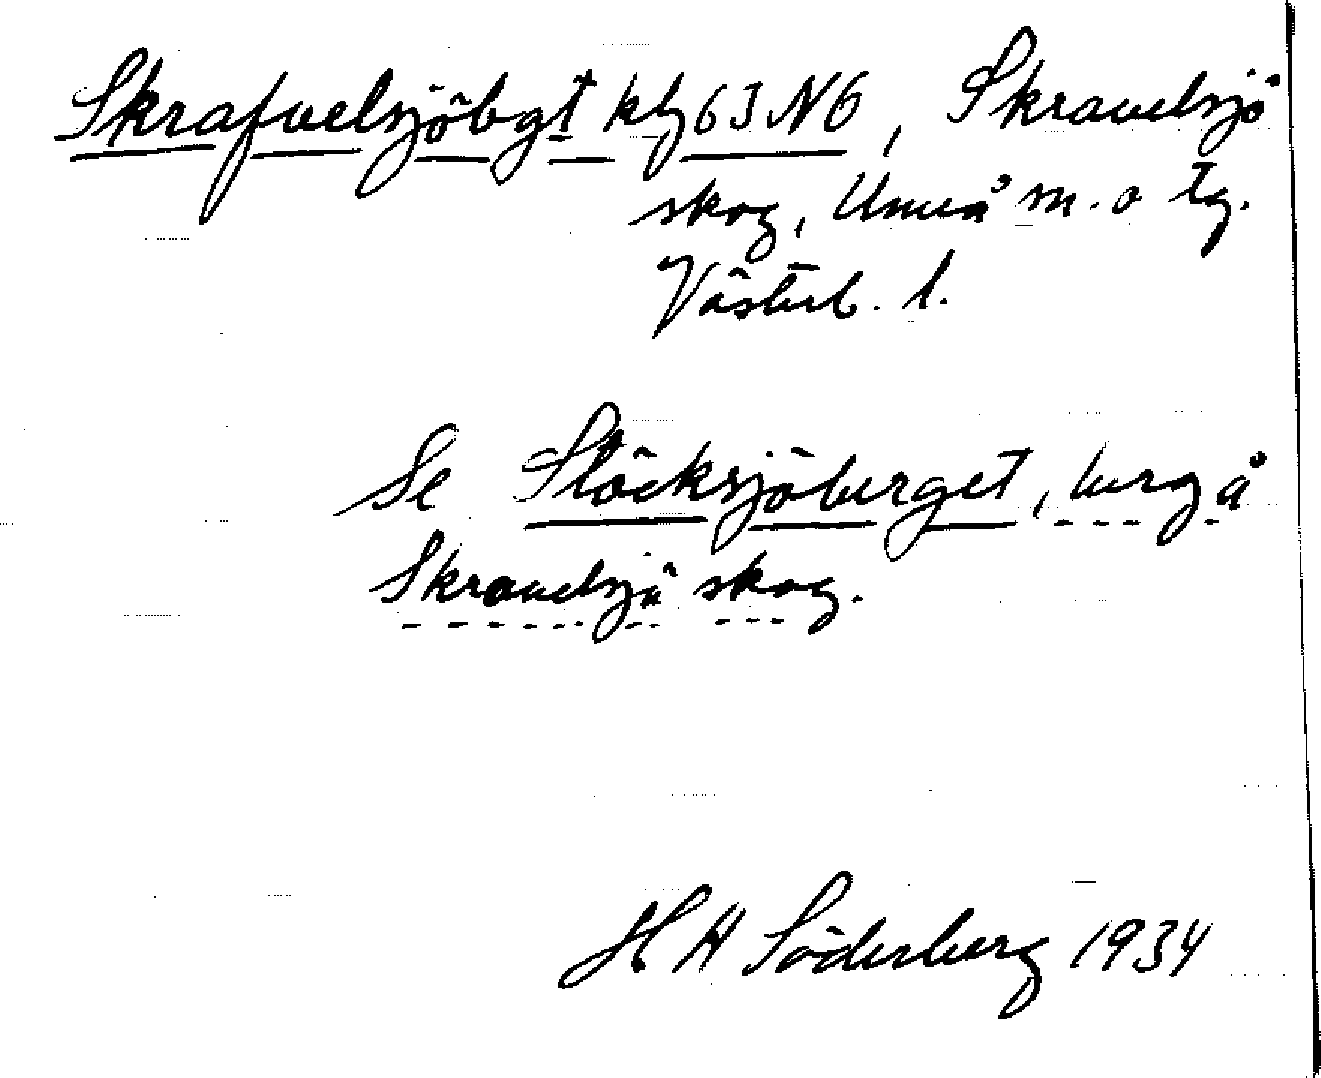 Skrafvelsjöbgt kbg 63 N6, Skravelsjö
skog, Umeå m. o tg.
Västerb. l.
Se Stöcksjöberget, berg å
Skravelsjö skog.
H A Söderberg 1934